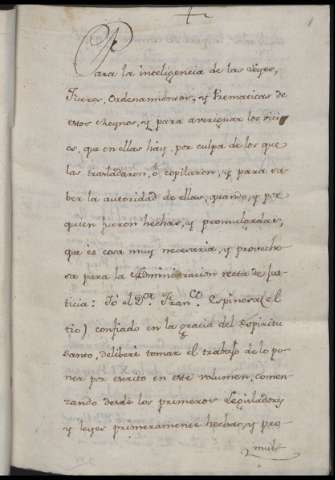 Para la inteligencia de las Leyes,
Fueros, Ordenamientos, y Prematicas de
estos Reynos, y para averiguar los vici
os, que en ellas hay, por culpa de los que
las trasladaron, ò copilaron, y para sa
ber la autoridad de ellas, quando, y por
quien fueron hechas, y promulgadas,
que es cosa muy necesaria, y provecho
sa para la Administracion recta de Jus
ticia: Yó el D.or Fran.co Espinosa (el
tio) confiado en la gracia del Espiritu
Santo, deliberé tomar el trabajo de lo po
ner por escrito en este volumen, comen
zando desde los primeros Legisladores
y leyes primeramente hechas, y pro
mul-